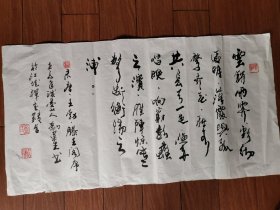 雲銷雨霽彩徹
區明落霞與孤
鶩齊飛秋水
共長天一色漁舟
唱晚響窮彭蠡
之濱雁陣驚寒
聲斷衡陽之
浦
唐王勃滕王阁序